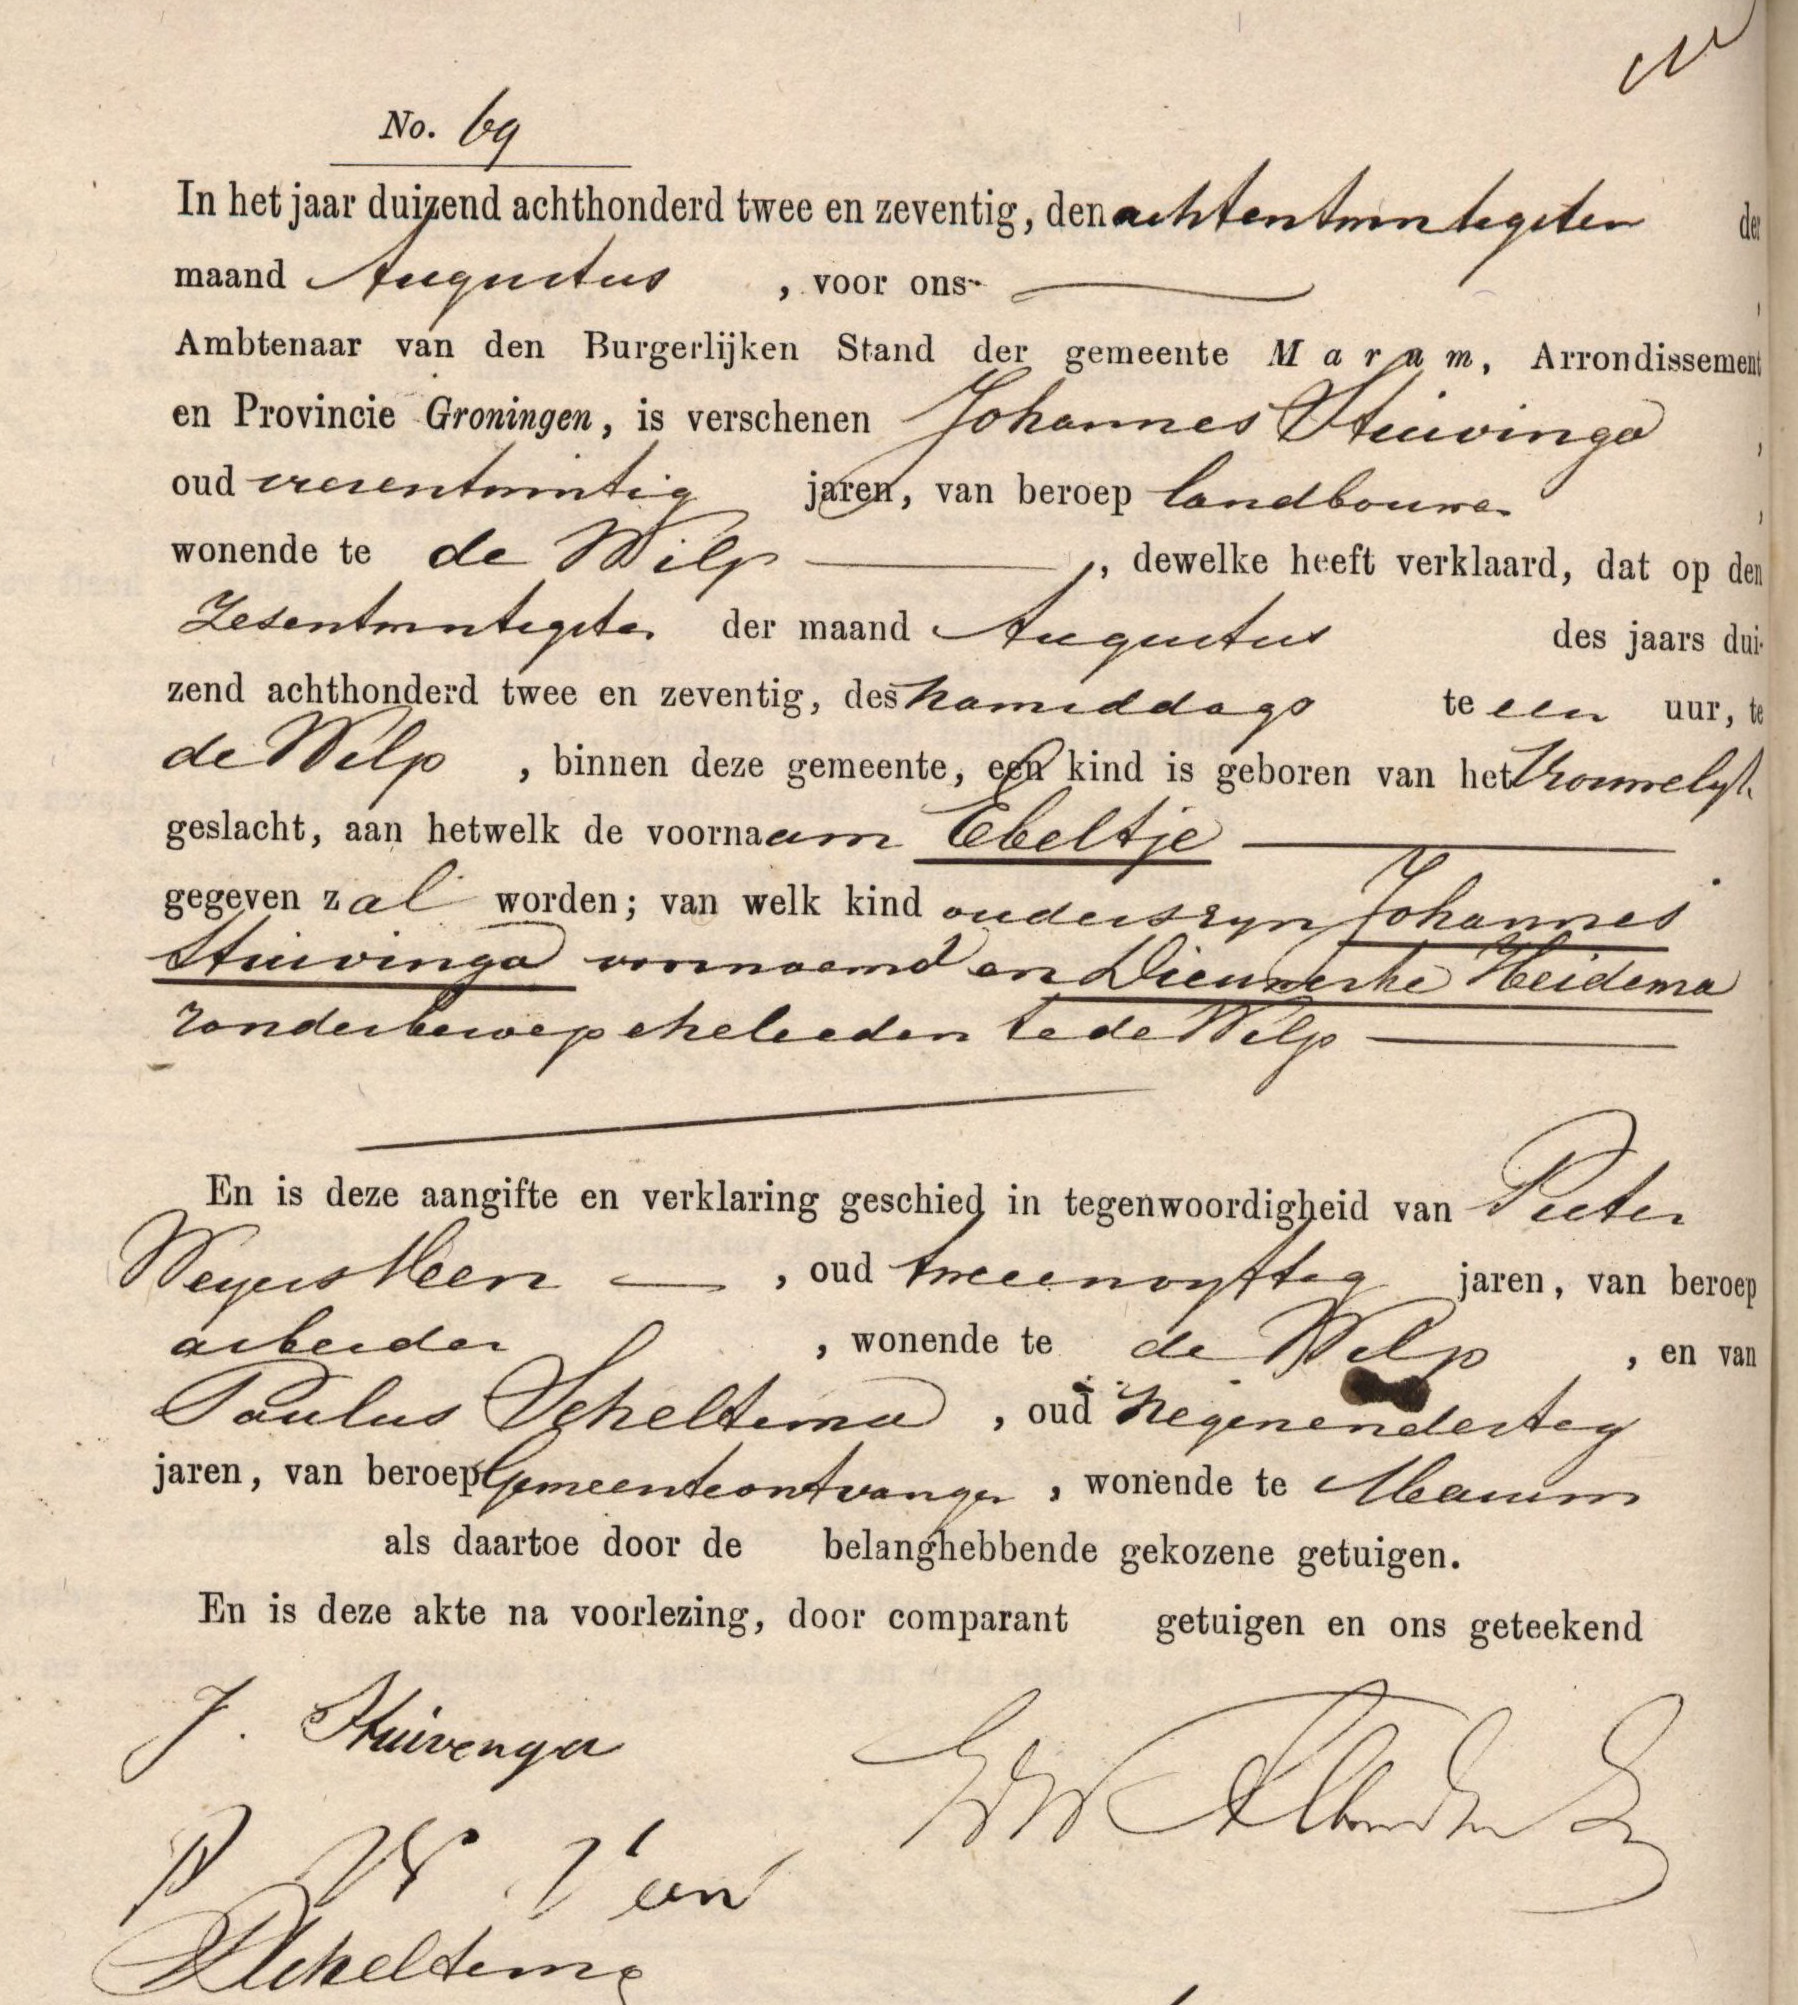 No. 69
In het jaar duizend achthonderd twee en zeventig, den achtentwintigsten der
maand Augustus , voor ons
Ambtenaar van den Burgerlijken Stand der gemeente Marum, Arrondissement
en Provincie Groningen, is verschenen Johannes Stuivinga ,
oud jaren, van beroep landbouwer ,
wonende te de Wilp , dewelke heeft verklaard, dat op den
Zesentwintigsten der maand Augustus des jaars dui-
zend achthonderd twee en zeventig, des namiddags te een uur, te
de Wilp , binnen deze gemeente, een kind is geboren van het Vrouwelijk
geslacht, aan hetwelk de voornaam Ebeltje
gegeven zal worden; van welk kind ouders zijn Johannes
Stuivinga voornoemd en Dieuwerke Heidema
zonder beroep ehelieden te de Wilp
En is deze aangifte en verklaring geschied in tegenwoordigheid van Pieter
Weijers Veen , oud tweeenvijftig jaren, van beroep
arbeider , wonende te de Wilp , en van
Paulus Scheltema , oud negenendertig
jaren, van beroep Gemeenteontvanger , wonende te Marum
als daartoe door de belanghebbende gekozene getuigen.
En is deze akte na voorlezing, door comparant getuigen en ons geteekend
J. Stuivenga
P W Veen
PScheltema